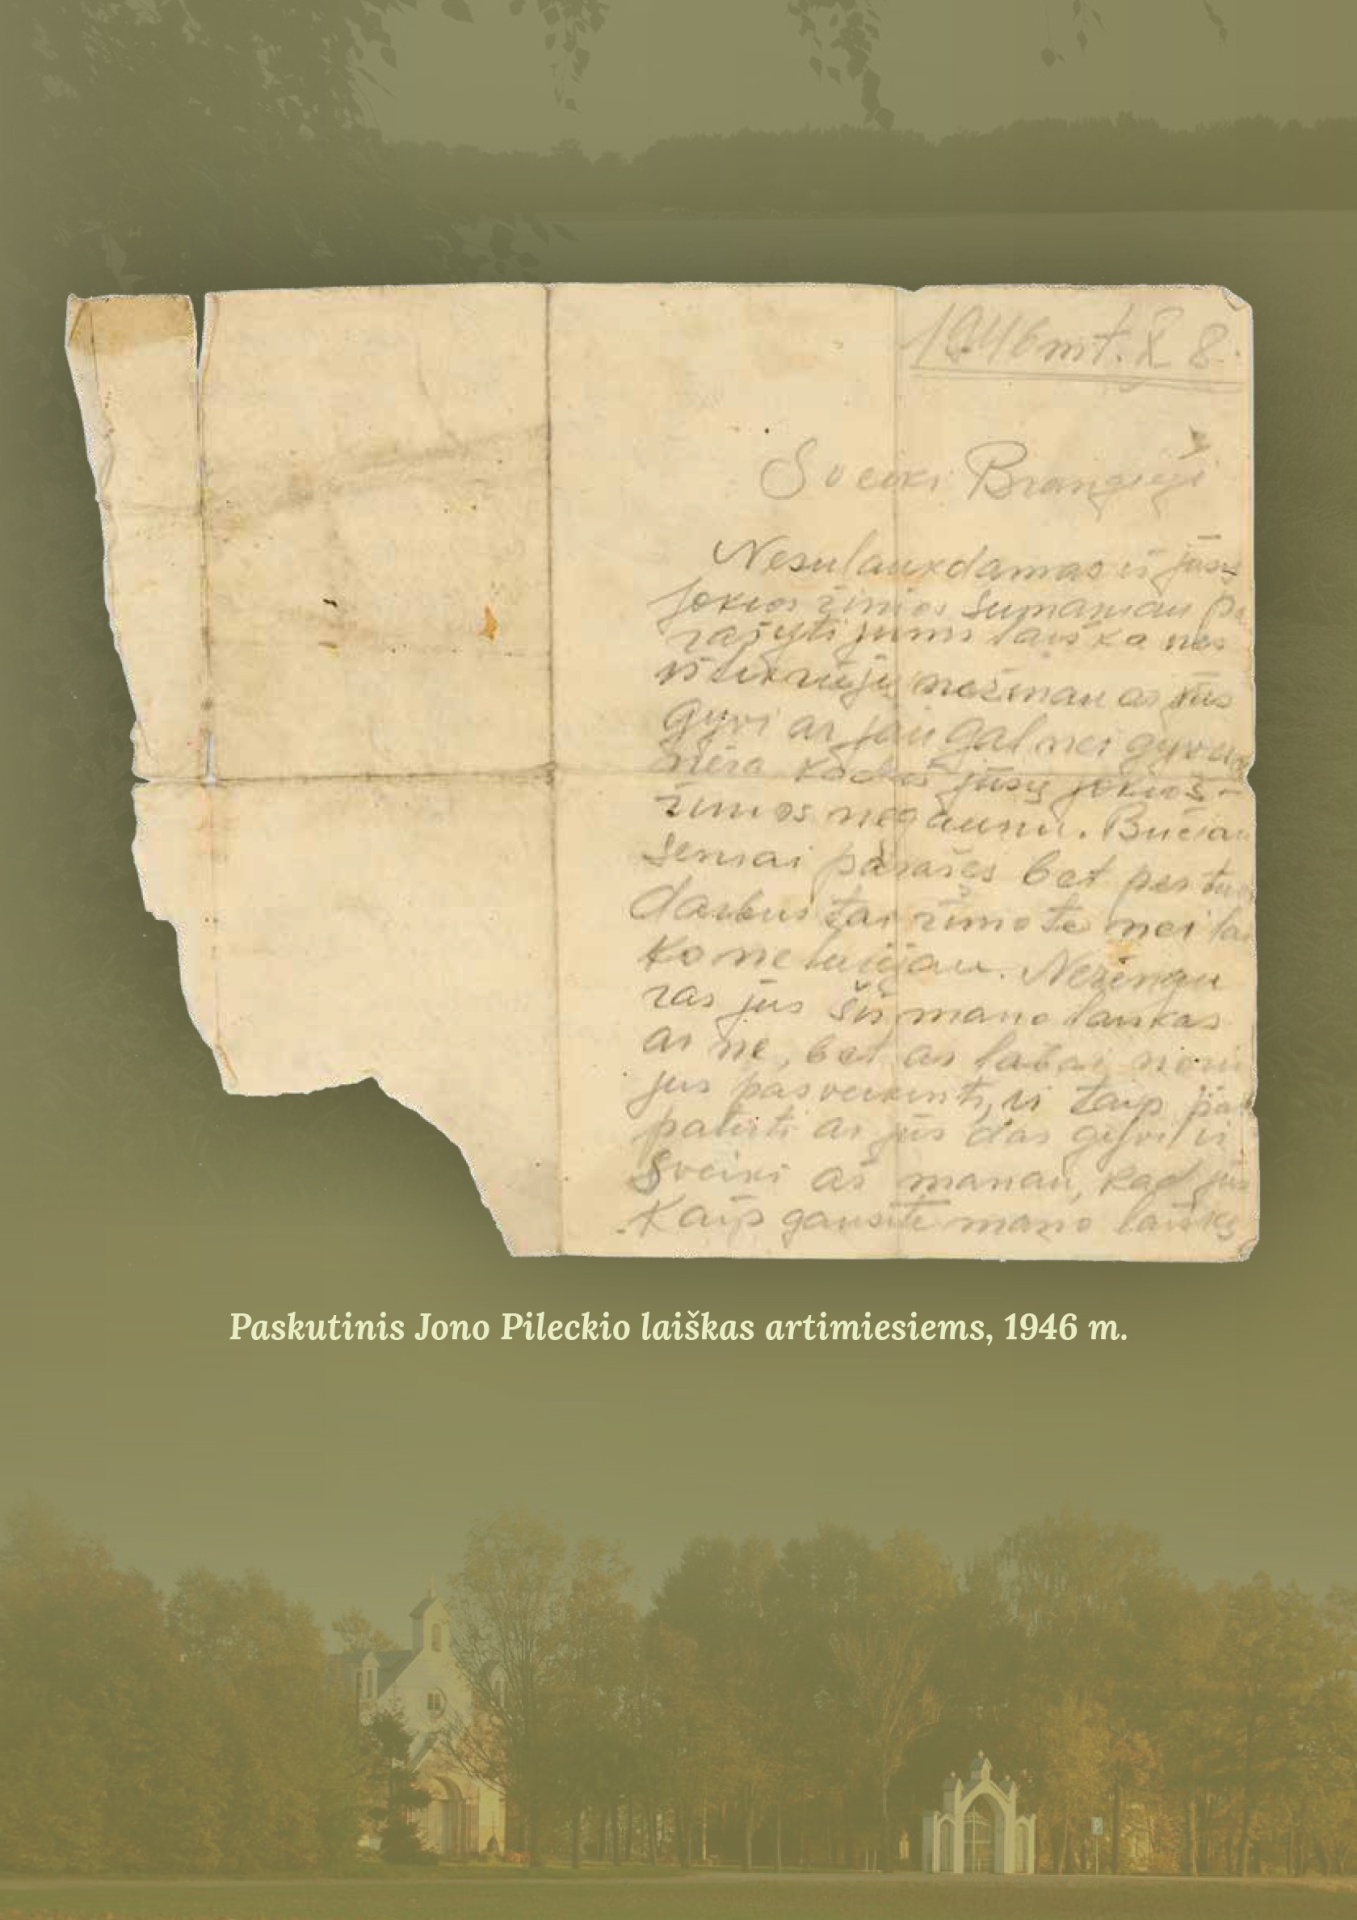 1946 mt. X 8.
Sveiki Brangieji
Nesulaukdamas iš jūsų
jokios žinios sumaniau pa
rašyti jums laiška nes
ištikrųjų nežinau ar jūs
gyvi ar jau gal nei gyvų
nėra kad iš jūsų jokios
žinios negaunu. Bučiau
senai parašęs bet per tuos
darbus tai žinote nei lai
ko neturėjau. Nežinau
ras jus šis mano laiškas
ar ne, bet aš labai noriu
jus pasveikinti, ir taip pat
patirti ar jūs dar gyvi ir
Sveiki aš manau, kad jūs
Kaip gausite mano laišką
Paskutinis Jono Pileckio laiškas artimiesiems, 1946 m.